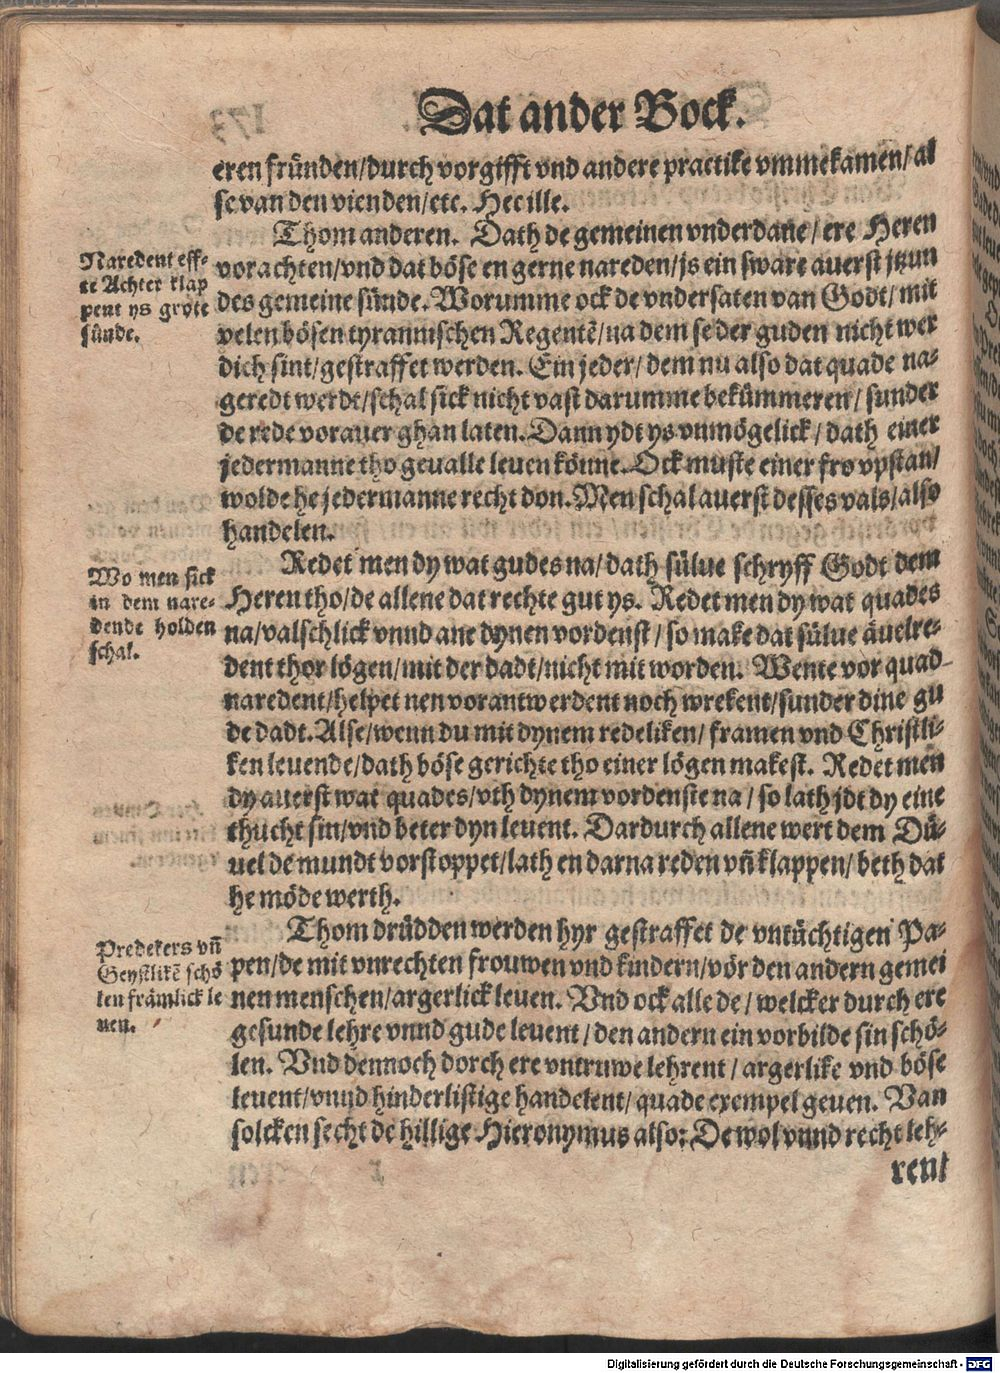 Dat ander Bock.
eren fründen/durch vorgifft vnd andere practike vmmekamen/al
se van den vienden/etc. Hec ille.
Thom anderen. Dath de gemeinen vnderdane/ere Heren
vorachten/vnd dat böse en gerne nareden/js ein sware auerst jtzun
des gemeine sünde. Worumme ock de vndersaten van Godt/mit
velen bösen tyrannischen Regentẽ/na dem se der guden nicht wer
dich sint/gestraffet werden. Ein jeder/dem nu also dat quade na-
geredt werdt/schal sick nicht vast darumme bekümmeren/sunder
de rede vorauer ghan laten. Dann ydt ys vnmögelick/dath einer
jedermanne tho geualle leuen könne. Ock muste einer fro vpstan/
wolde he jedermanne recht don. Men schal auerst desses vals/also
handelen.
Naredent eff-
te Achter klap
pent ys grote
sünde.
Redet men dy wat gudes na/dath sülue schryff Godt dem
Heren tho/de allene dat rechte gut ys. Redet men dy wat quades
na/valschlick vnnd ane dynen vordenst/so make dat sülue äuelre-
dent thor lögen/mit der dadt/nicht mit worden. Wente vor quad
naredent/helpet nen vorantwerdent noch wrekent/sunder dine gu
de dadt. Alse/wenn du mit dynem redeliken/framen vnd Christli-
ken leuende/dath böse gerichte tho einer lögen makest. Redet men
dy auerst wat quades/vth dynem vordenste na/so lath jdt dy eine
thucht sin/vnd beter dyn leuent. Dardurch allene wert dem Dü-
uel de mundt vorstoppet/lath en darna reden vñ klappen/beth dat
he möde werth.
Wo men sick
in dem nare-
dende holden
schal.
Thom drüdden werden hyr gestraffet de vntüchtigen Pa-
pen/de mit vnrechten frouwen vnd kindern/vör den andern gemei
nen menschen/argerlick leuen. Vnd ock alle de/welcker durch ere
gesunde lehre vnnd gude leuent/den andern ein vorbilde sin schö-
len. Vnd dennoch dorch ere vntruwe lehrent/argerlike vnd böse
leuent/vnnd hinderlistige handelent/quade exempel geuen. Van
solcken secht de hillige Hieronymus also: De wol vnnd recht leh-
rent
Predekers vñ
Geystlikẽ schö
len främlick le
uen.
Digitalisierung gefördert durch die Deutsche Forschungsgemeinschaft - DFG